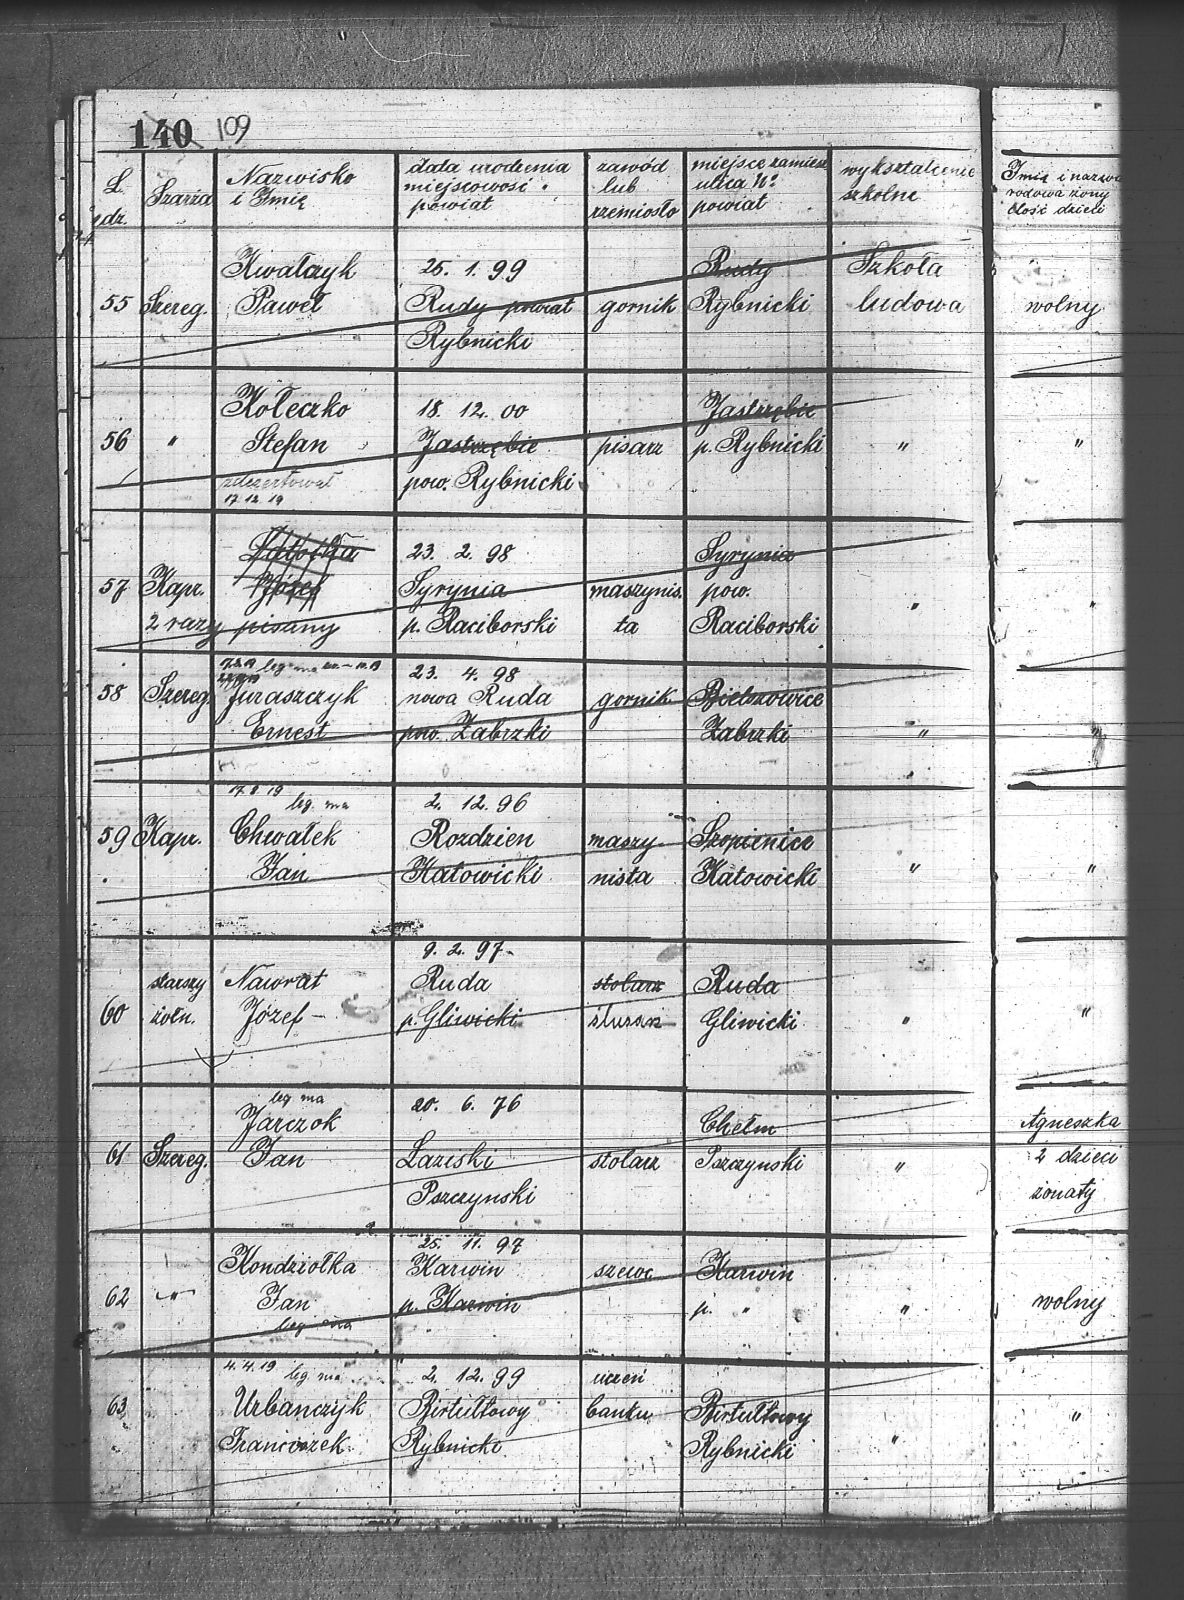 140 109
L. dz.
Szarża
Nazwisko
i Imię
data urodzenia
miejscowość
powiat
zawód
lub
rzemiosło
miejsce zamiesz
ulica No
powiat
wykształcenie
szkolne
Imię i nazwi
rodowa żony
Ilość dzieci
Kwałczyk 25. 1. 99 Rudy Szkoła
55 Szereg. Paweł Rudy powiat gornik Rybnicki ludowa wolny
Rybnicki
Kołeczko 18. 12. 00 Jastrzębie
56 " Stefan Jastrzębie pisarz p. Rybnicki " "
zdezertował pow. Rybnicki
17 12 19
23. 2. 98 Syrynia
57 Kapr. Józef Syrynia maszynis. pow. " "
2 razy pisany p. Raciborski ta Raciborski
leg ma 23. 4. 98
58 Szereg. Juraszczyk nowa Ruda gornik Bielszowice
Ernest pow. Zabrzki Zabrzki " "
17. 8 19 leg. ma 2. 12. 96
59 Kapr. Chwałek Rozdzien maszy- Szopienice
Jan Katowicki nista Katowicki " "
9. 2. 97-
starszy Nawrat Ruda stolarz Ruda
60 żołn. Józef - p. Gliwicki ślusarz Gliwicki " "
leg ma 20. 6. 76
Jarczok Chełm Agneszka
61 Szereg. Jan Laziski stolarz Pszczynski " 2 dzieci
Pszczynski żonaty
25. 11. 97
Kondziołka Karwin szewc Karwin
62 " Jan p. Karwin p. " " wolny
leg ma
4. 4. 19 leg ma 2. 12. 99 uczeń
63 Urbanczyk Birtułtowy banku Birtułtowy "
Franciszek Rybnicki Rybnicki "